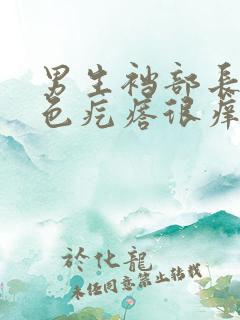 男生裆部長
色疙瘩很癢
於化龍
未经同意禁止转载